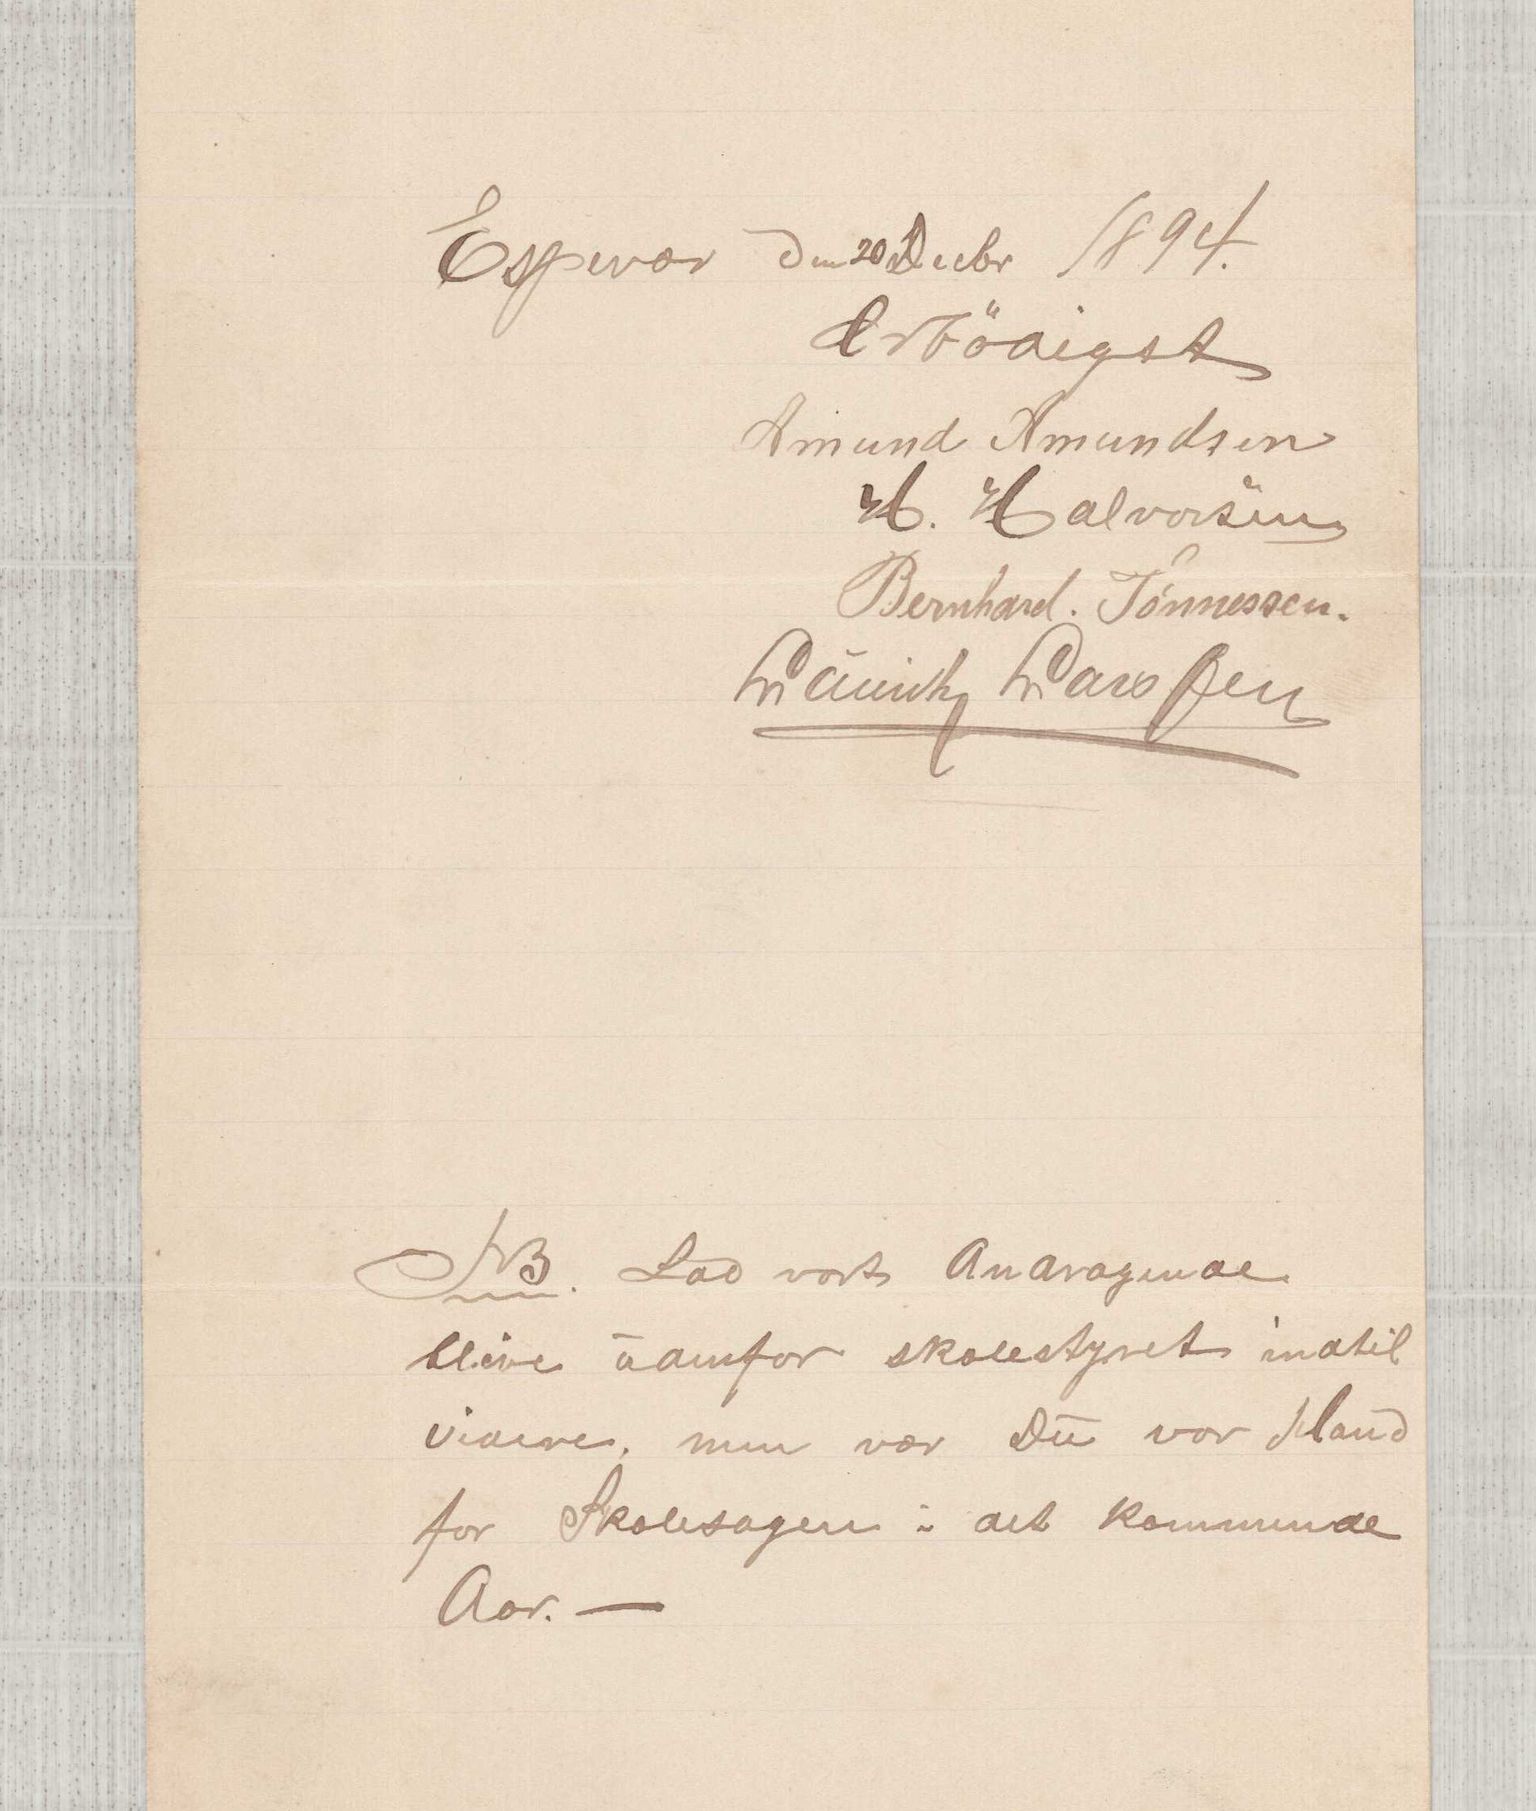 Espevær den 20 Decbr 1894.
Erbödigst
Amund Amundsen
H. Halvorsen
Bernhard. Tönnessen.
Larsen
NB. Lad vort Andragende
blive udenfor skolestyret indtil
videre, men vær Du vor Mand
for Skolesagen i det kommende
Aar. —